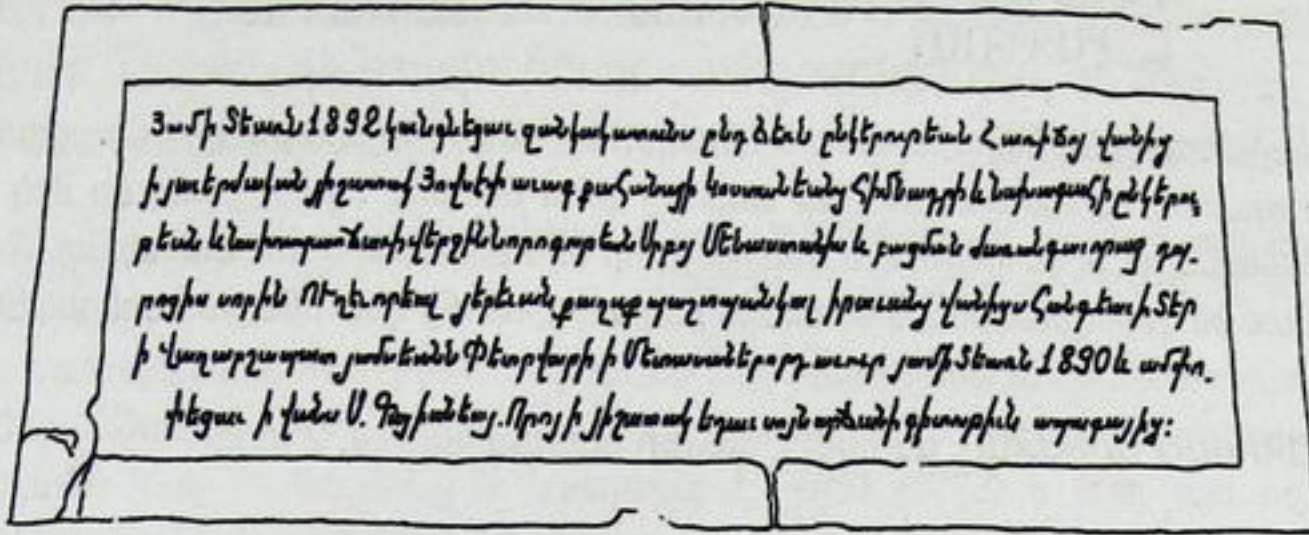 Յամի Տեառն 1892 կանգնեցաւ զանգակատունս ընդ ձեռն ընկերութեան Հառիճոյ վանից
ի յաւերժական յիշատակ Յովսէփի աւագ քահանայի Կոստանեանց հիմնադրի և նախագահի ընկերու
թեան և նախապատճառի վերջին նորոգութեան Սրբոյ Մենաստանիս և բազման ժառանգաւորաց դպ-
րոցիս սորին Ուղեւորեալ յերեւան քաղաք պաշտպան կալ իրաւանց վանիցս հանգեաւ ի Տէր
ի Վաղարշապատ յամսեանն Փետրվարի ի Մետասաներորդ աւուր յամի Տեառն 1890 և ամփո-
փեցաւ ի վանս Ս. Գայիանեայ. Որոյ ի յիշատակ եդաւ սոյն արձանի գիտութիւն ապագայից: